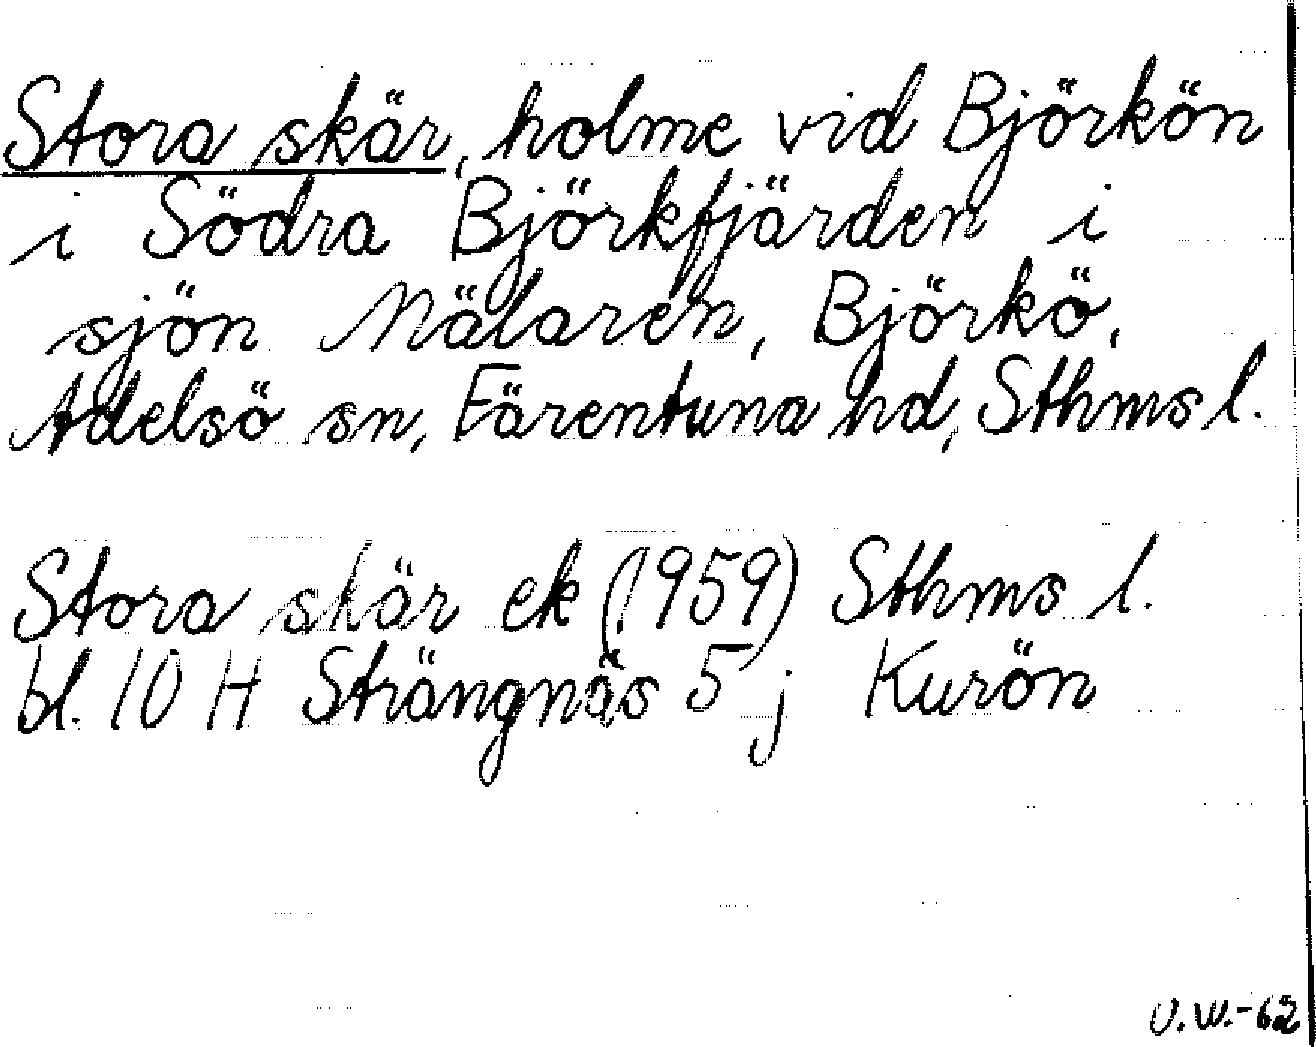 Stora skär, holme vid Björkön
i Södra Björkfjärden i
sjön Mälaren, Björkö,
Adelsö sn, Färentuna hd, Sthms l.
Stora skär ek (1959) Sthms l.
bl. 10 H Strängnäs 5 j Kurön
U.W.-62